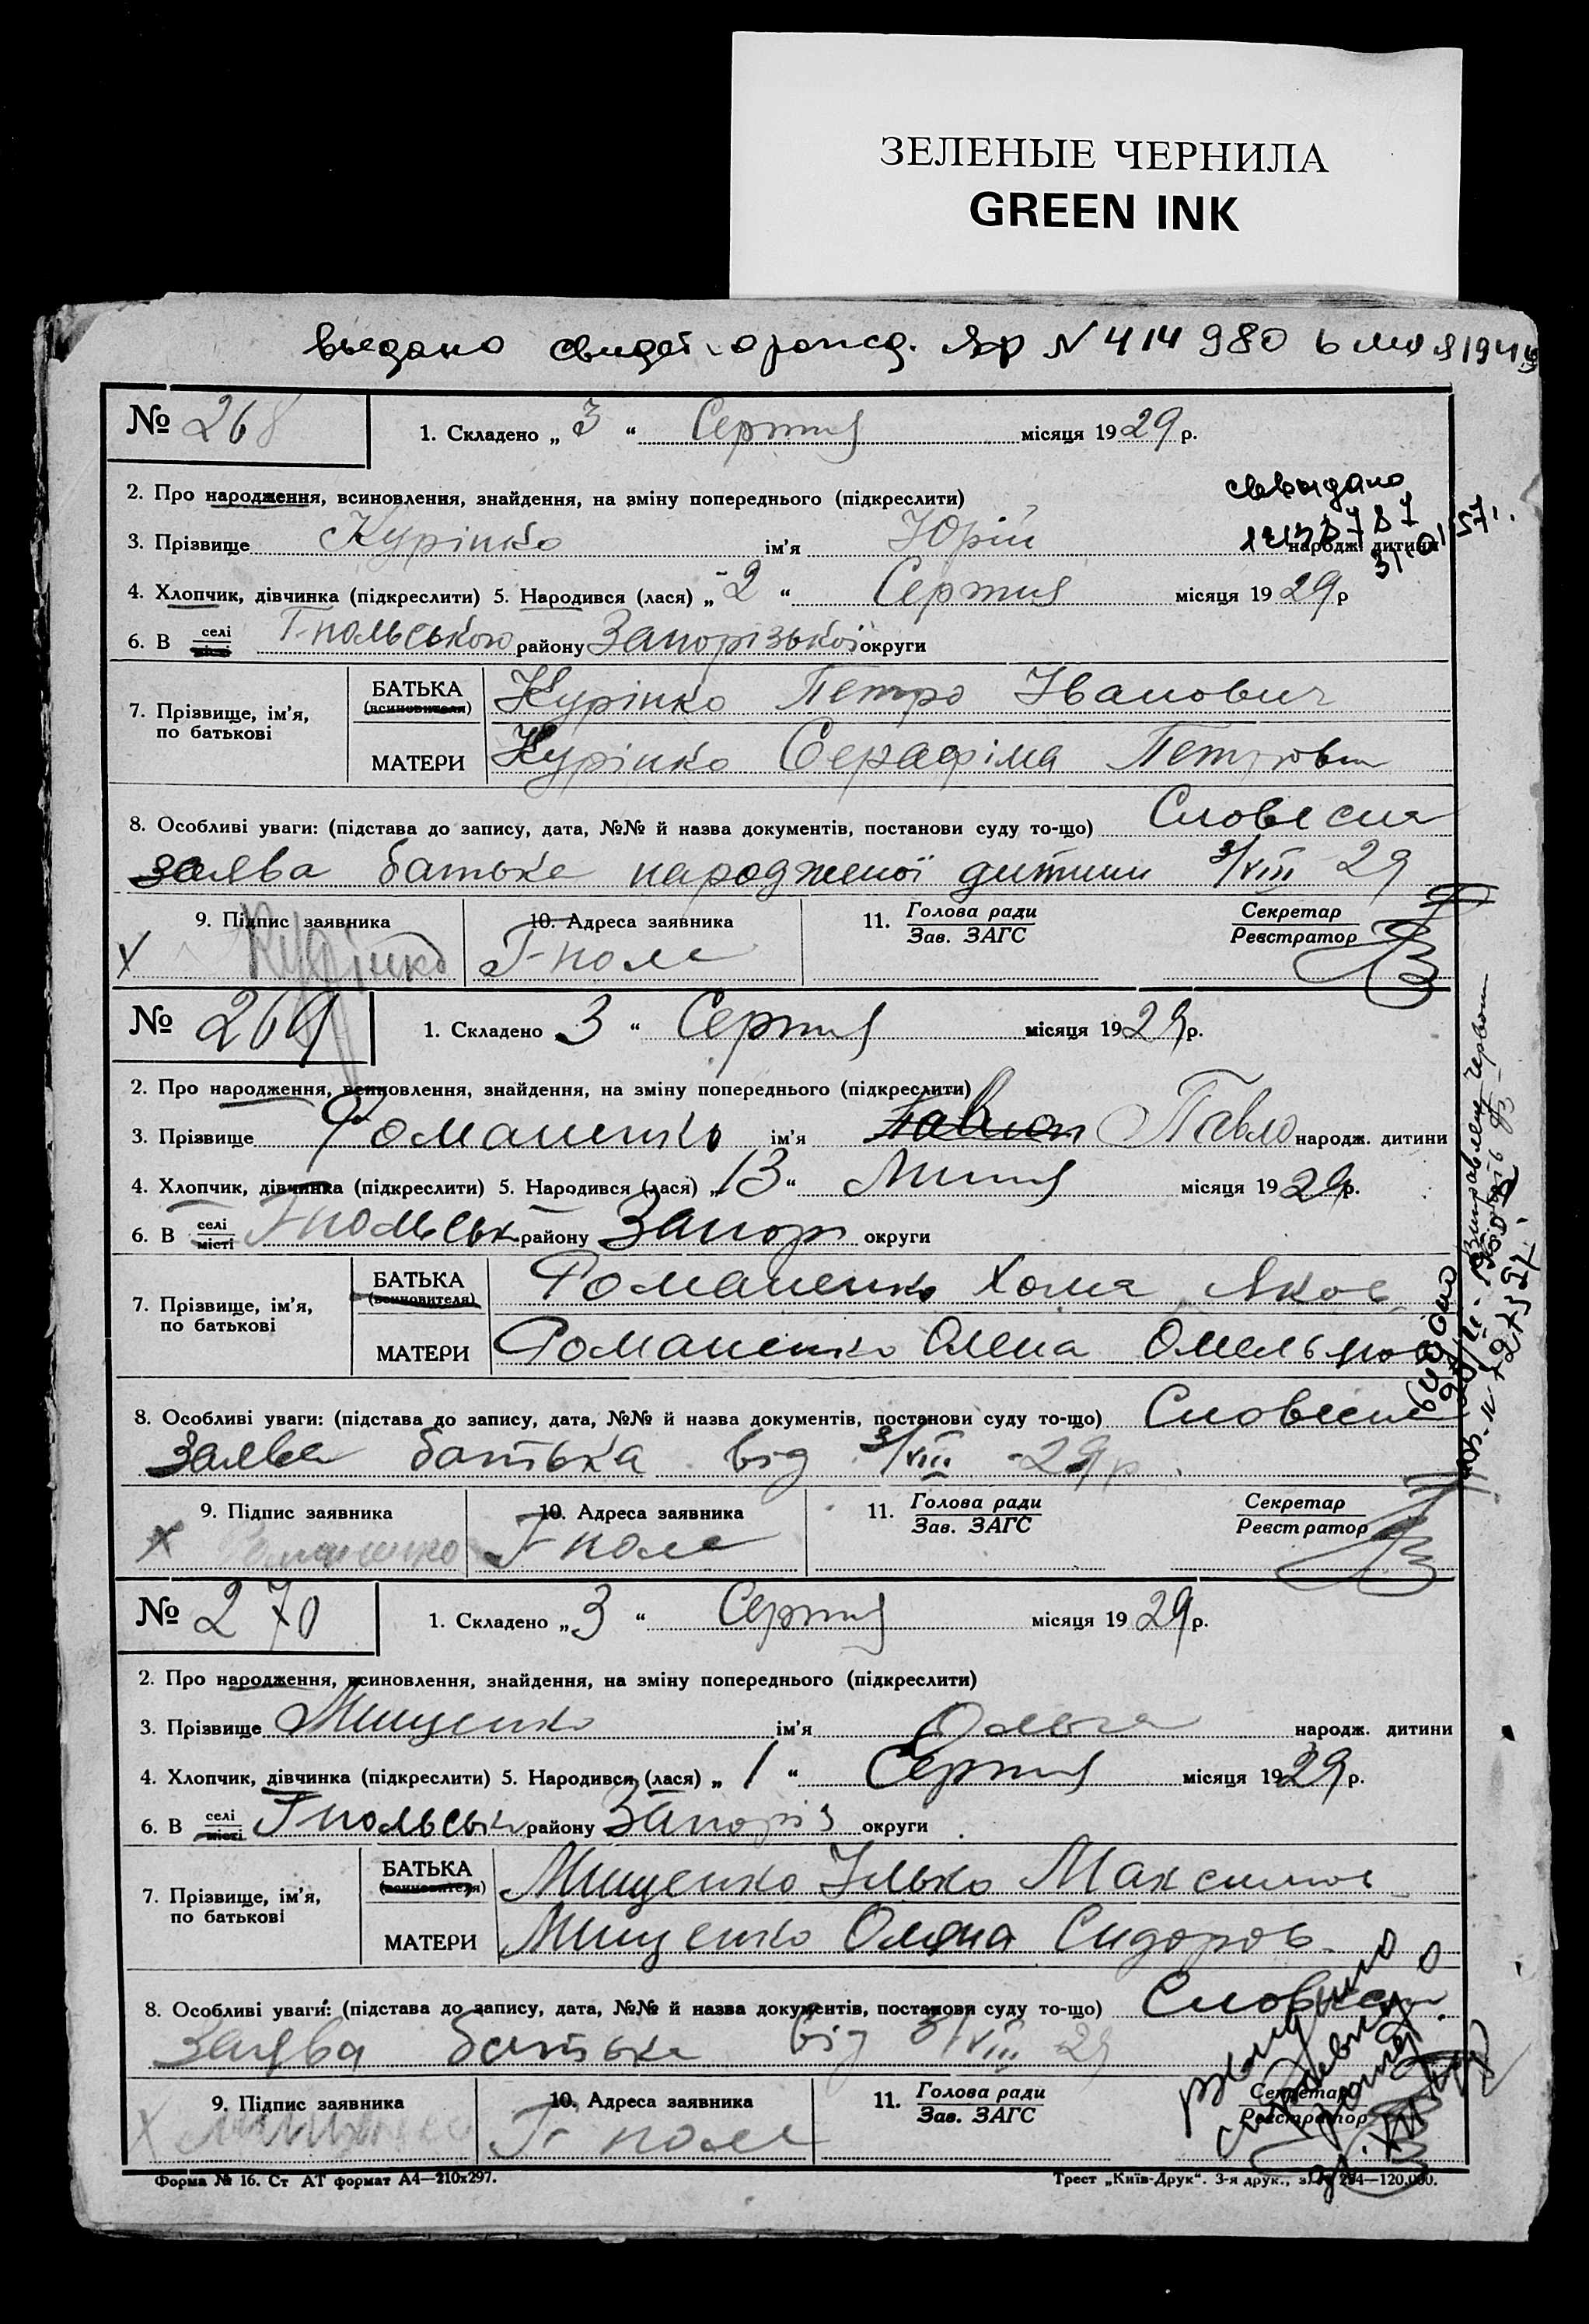 ЗЕЛЕНЫЕ ЧЕРНИЛА
GREEN INK
выдано свидет. о рожд. № 414980 6 мая 194
№ 268 1. Складено „3“ Серпня місяця 1929 р.
2. Про народження, всиновлення, знайдення, на зміну попереднього (підкреслити)
3. Прізвище Курінко ім'я Юрій народж. дитини
4. Хлопчик, дівчинка (підкреслити) 5. Народився (лася) „2“ Серпня місяця 1929 р
6. В селі місті Г-польського району Запорізької округи
7. Прізвище, ім'я, по батькові
БАТЬКА (всиновителя) Курінко Петро Іванович
МАТЕРИ Курінко Серафіма Петровн
8. Особливі уваги: (підстава до запису, дата, №№ й назва документів, постанови суду то-що) Словесна
заява батька народженої дитини 3/VIII 29
9. Підпис заявника 10. Адреса заявника 11. Голова ради Зав. ЗАГС Секретар Реєстратор
Х Курінко Г-поле
№ 269 1. Складено 3 “ Серпня місяця 1929 р.
2. Про народження, всиновлення, знайдення, на зміну попереднього (підкреслити)
3. Прізвище Романенко ім'я Павло народж. дитини
4. Хлопчик, дівчинка (підкреслити) 5. Народився (лася) „13“ Липня місяця 1929 р.
6. В селі місті Г-польськ району Запор округи
7. Прізвище, ім'я, по батькові
БАТЬКА (всиновителя) Романенко Хома Яков
МАТЕРИ Романенко Олена Омельян
8. Особливі уваги: (підстава до запису, дата, №№ й назва документів, постанови суду то-що) Словесна
Заява батька від 3/VIII -29 р.
9. Підпис заявника 10. Адреса заявника 11. Голова ради Зав. ЗАГС Секретар Реєстратор
х Романенко Г-поле
№ 270 1. Складено „3“ Серпня місяця 1929 р.
2. Про народження, всиновлення, знайдення, на зміну попереднього (підкреслити)
3. Прізвище Мищенко ім'я Ольга народж. дитини
4. Хлопчик, дівчинка (підкреслити) 5. Народився (лася) „1“ Серпня місяця 1929 р.
6. В селі місті Г-польськ району Запоріз округи
7. Прізвище, ім'я, по батькові
БАТЬКА (всиновителя) Мищенко Ілько Максимов
МАТЕРИ Мищенко Оляна Сидоров.
8. Особливі уваги: (підстава до запису, дата, №№ й назва документів, постанови суду то-що) Словесна
Заява батька від 3/VIII 29
9. Підпис заявника 10. Адреса заявника 11. Голова ради Зав. ЗАГС Секретар Реєстратор
Х Г-поле
Форма № 16. Ст АТ формат А4—210х297. Трест „Київ-Друк“. 3-я друк., 294—120.000.